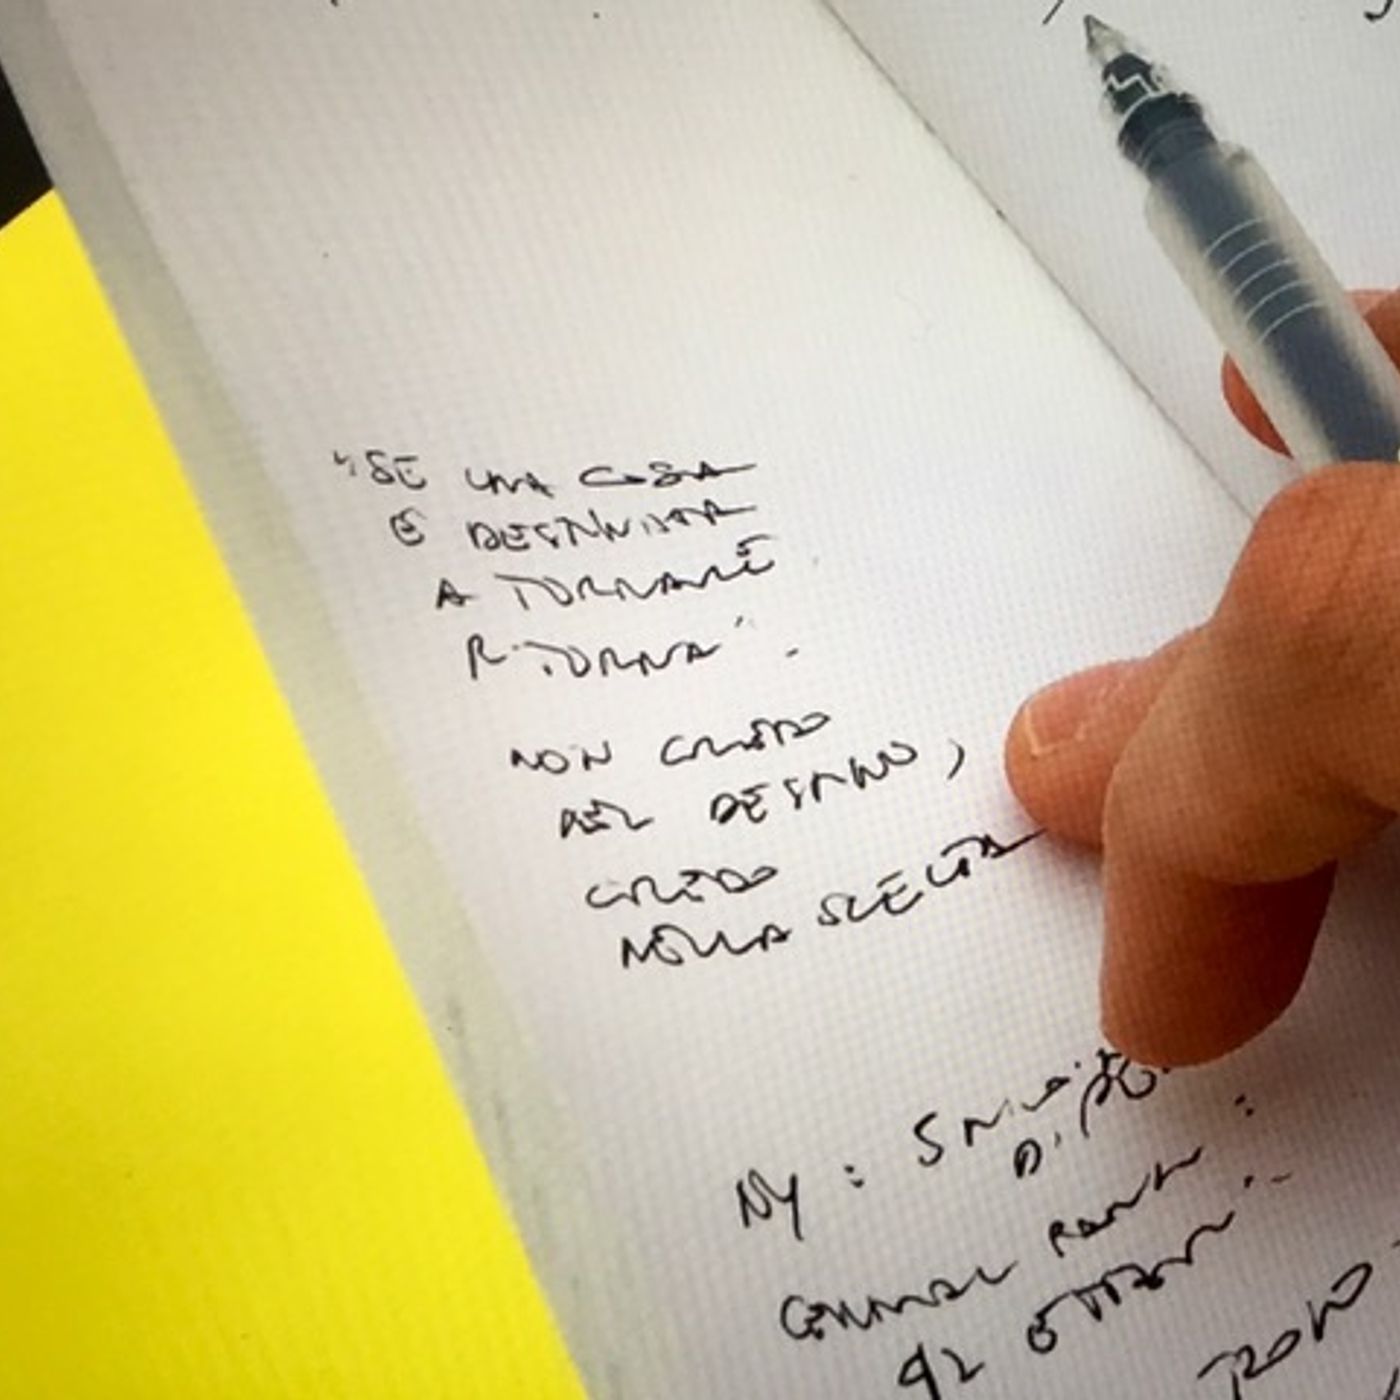 "SE UNA COSA
È DESTINATA
A TORNARE
RITORNA".
NON CREDO
NEL DESTINO,
CREDO
NELLA SCELTA
NY:
DI
CENTRAL PARK:
ETTARI